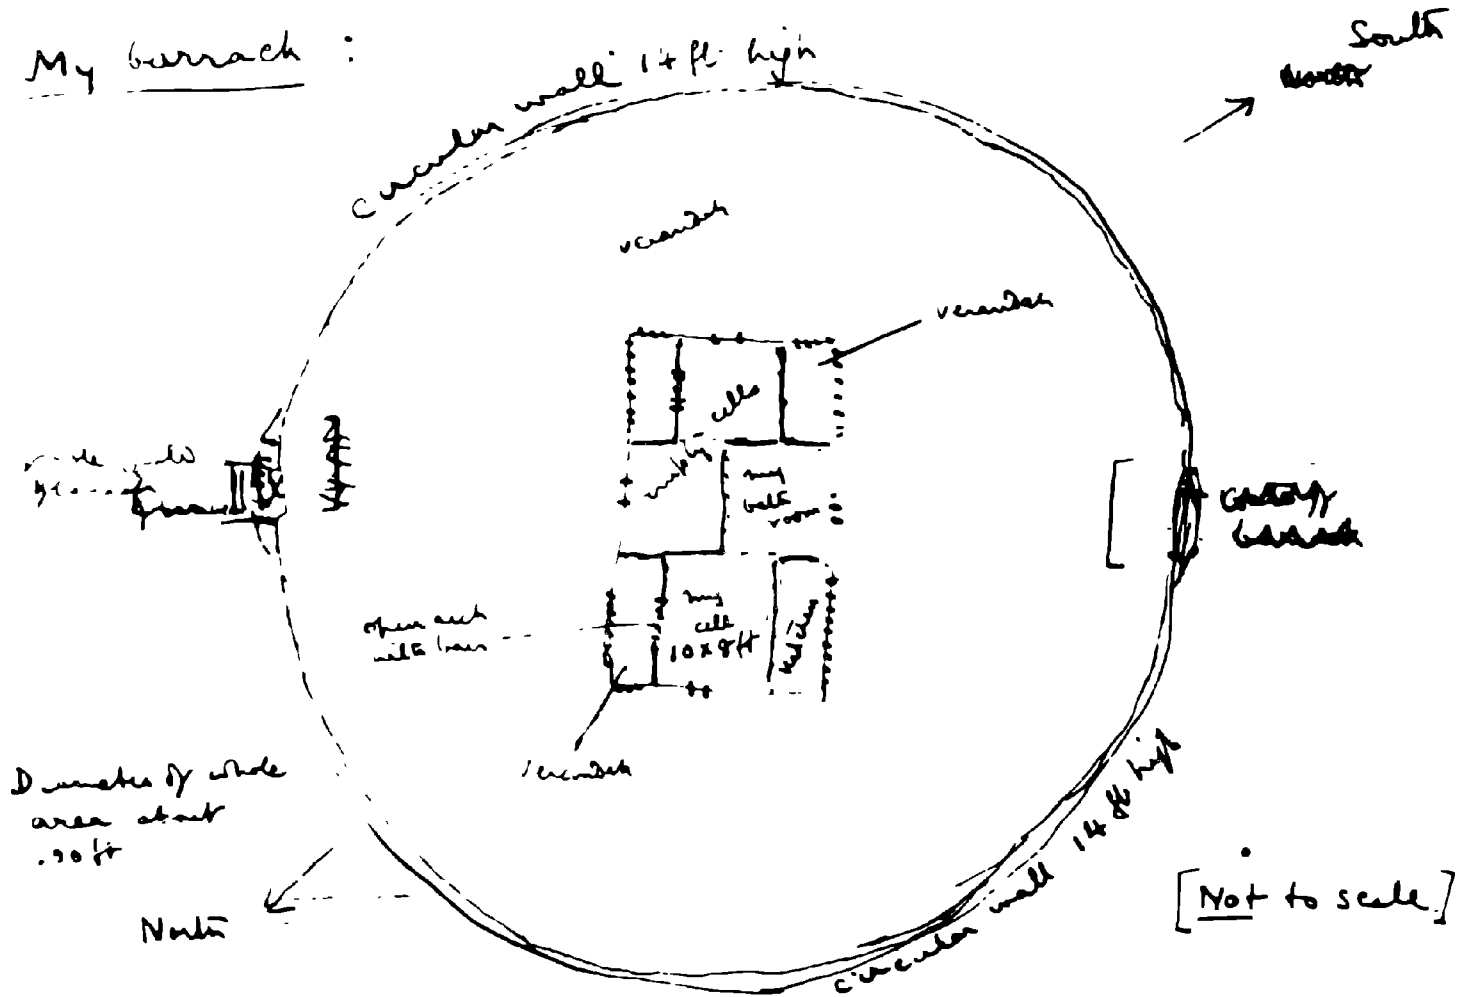 My barrack :
South
circular wall 14 ft high
verandah
verandah
cells
empty
my
bath
room
open arch
with bars
my
cell
10 x 8 ft
Kitchen
verandah
Diameter of whole
area about
90 ft
North
circular wall 14 ft high
[Not to scale]